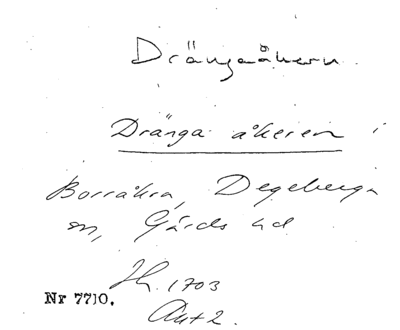 Drängaåkern.
Dränga åkeren i
Borråkra, Degeberga
sn, Gärds hd
Jh. 1703
Nr 7710.
Ant 2.